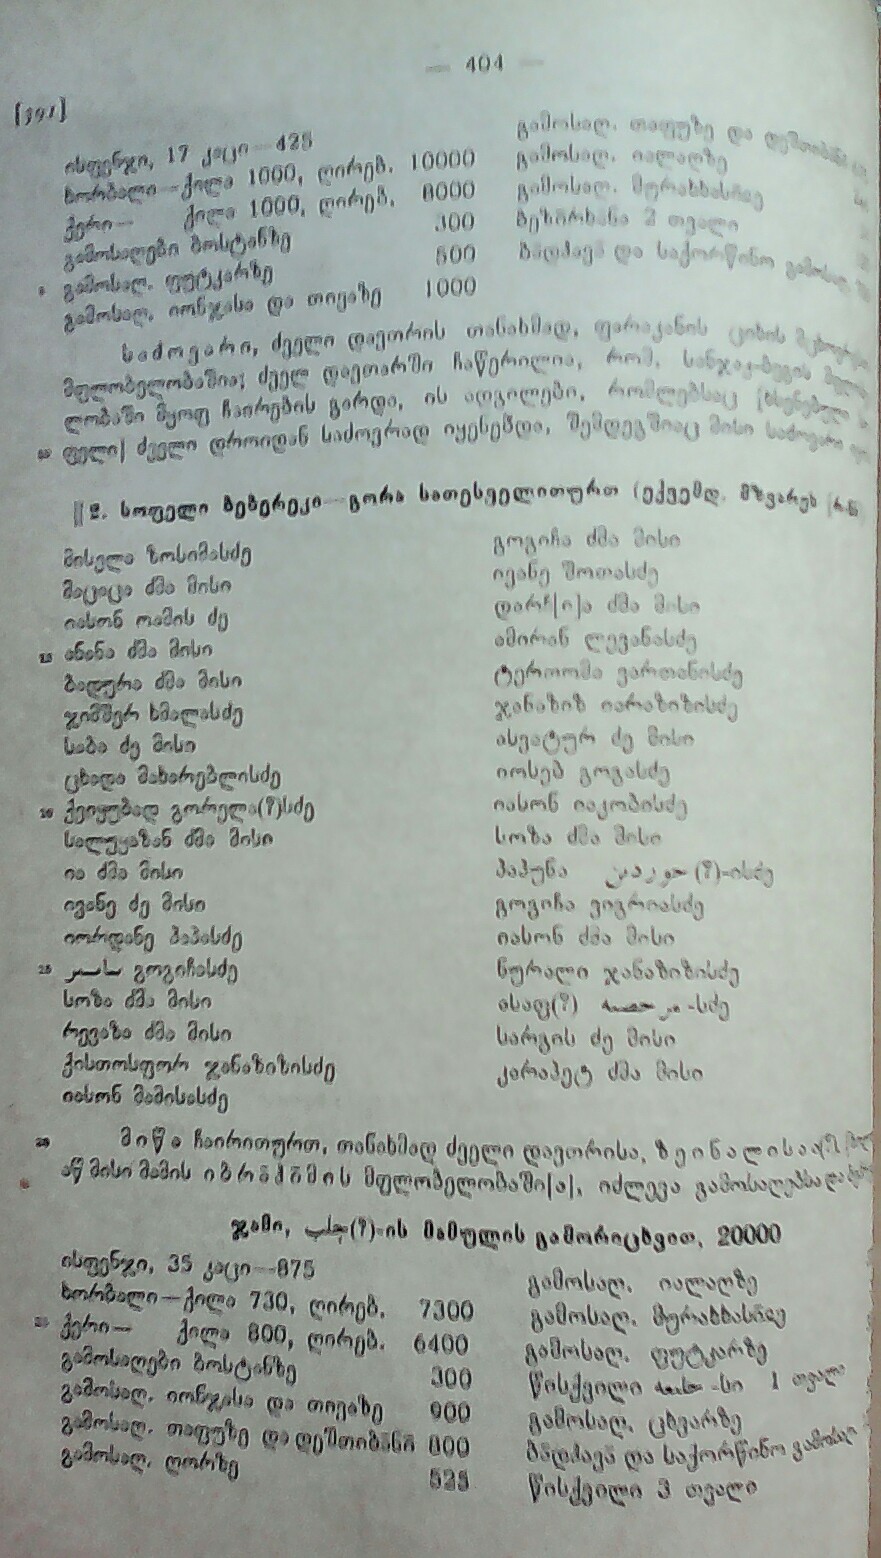 — 404 —
[391]
ისფენჯი, 17 კაცი—425
ხორბალი—ქილა 1000, ღირებ. 10000
ქერი— ქილა 1000, ღირებ. 8000
გამოსაღები ბოსტანზე 300
გამოსაღ. ფუტკარზე 500
გამოსაღ. იონჯასა და თივაზე 1000
გამოსაღ. თაფუზე და
გამოსაღ. იალაღზე
გამოსაღ.
ბეზირხანა 2 თვალი
ბადჰავა და საქორწინო გამოსაღ.
საძოვარი, ძველი დავთრის თანახმად, ფარაკანის ციხის
მფლობელობაშია; ძველ დავთარში ჩაწერილია, რომ, სანჯაყ-ბეგის
ლობაში მყოფ ჩაირების გარდა, ის ადგილები, რომლებსაც [ხსენებული
10 ფელი] ძველი დროიდან საძოვრად იყენებდა, შემდეგშიაც მისი საძოვარი
2. სოფელი ბებერეკი—გორა სათესველითურთ (ექვემდ. მზვარეს
მისელა ზოსიმასძე
მაცაცა ძმა მისი
იასონ ოამის ძე
15 ანანა ძმა მისი
ბადურა ძმა მისი
ჯიმშერ ხმალასძე
საბა ძე მისი
ცხადა მახარებლისძე
20 ქეიყუბად გორელა(?)სძე
სალუყაზან ძმა მისი
ია ძმა მისი
ივანე ძე მისი
იორდანე პაპასძე
25 გოგიჩასძე
სოზა ძმა მისი
რევაზა ძმა მისი
ქისთოსფორ ჯანაზიზისძე
იასონ მამისასძე
გოგიჩა ძმა მისი
ივანე შოთასძე
დარჩ[ი]ა ძმა მისი
ამირან ლევანასძე
ტეროომა ვართანისძე
ჯანაზიზ იარაზიზისძე
ასვატურ ძე მისი
იოსებ გოგასძე
იასონ იაკობისძე
სოზა ძმა მისი
პაპუნა (?)-ისძე
გოგიჩა ვიგრიასძე
იასონ ძმა მისი
ნურალი ჯანაზიზისძე
ასაფ(?) -სძე
სარგის ძე მისი
კარაპეტ ძმა მისი
მიწა ჩაირითურთ, თანახმად ძველი დავთრისა, ზეინალისაა(?)
აწ მისი მამის იბრაჰიმის მფლობელობაში[ა], იძლევა გამოსაღებსა და
ჯამი, چلب(?)-ის მამულის გამორიცხვით, 20000
ისფენჯი, 35 კაცი—875
ხორბალი—ქილა 730, ღირებ. 7300
ქერი— ქილა 800, ღირებ. 6400
გამოსაღები ბოსტანზე 300
გამოსაღ. იონჯასა და თივაზე 900
გამოსაღ. თაფუზე და დეშთიბანი 800
გამოსაღ. ღორზე 525
გამოსაღ. იალაღზე
გამოსაღ.
გამოსაღ. ფუტკარზე
წისქვილი -სი 1 თვალი
გამოსაღ. ცხვარზე
ბადჰავა და საქორწინო გამოსაღ
წისქვილი 3 თვალი